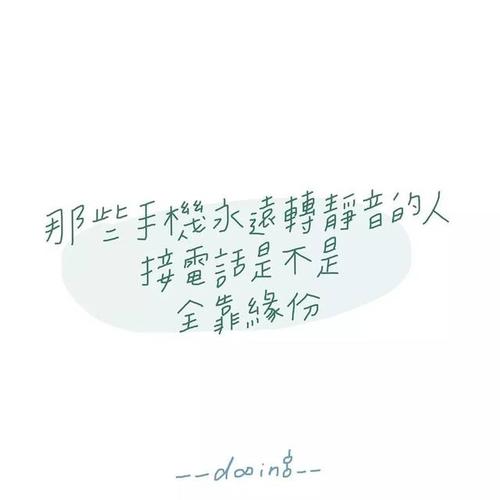 那些手機永遠轉靜音的人
接電話是不是
全靠緣份
--dooing--